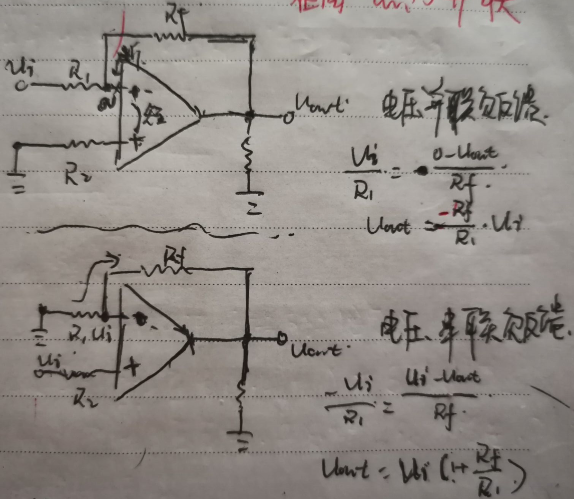 Rf
Ui R₁ - Uout
+
R₂
电压并联负反馈.
Ui/R₁ = 0-Uout/Rf.
Uout = -Rf/R₁ · Ui
Rf
R₁ Ui - Uout.
Ui +
R₂
电压串联负反馈.
-Ui/R₁ = Ui-Uout/Rf.
Uout = Ui (1+Rf/R₁)